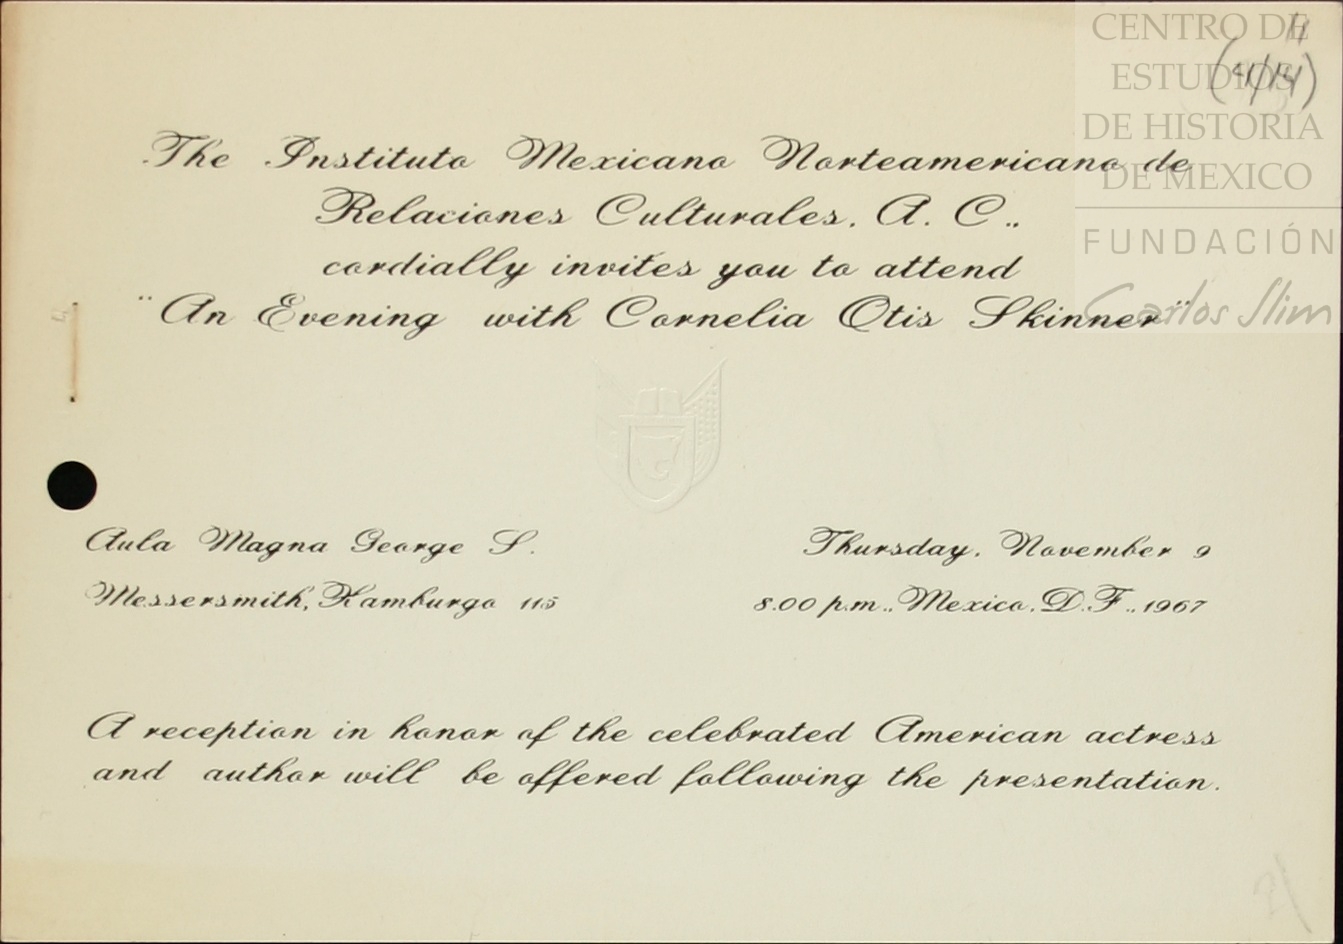 CENTRO DE
ESTUDIOS
DE HISTORIA
DE MEXICO
FUNDACIÓN
Carlos Slim
(4/14)
The Instituto Mexicano Norteamericano de
Relaciones Culturales, A. C.,
cordially invites you to attend
"An Evening with Cornelia Otis Skinner"
Aula Magna George S.
Messersmith, Hamburgo 115
Thursday, November 9
8.00 p.m., Mexico, D.F., 1967
A reception in honor of the celebrated American actress
and author will be offered following the presentation.